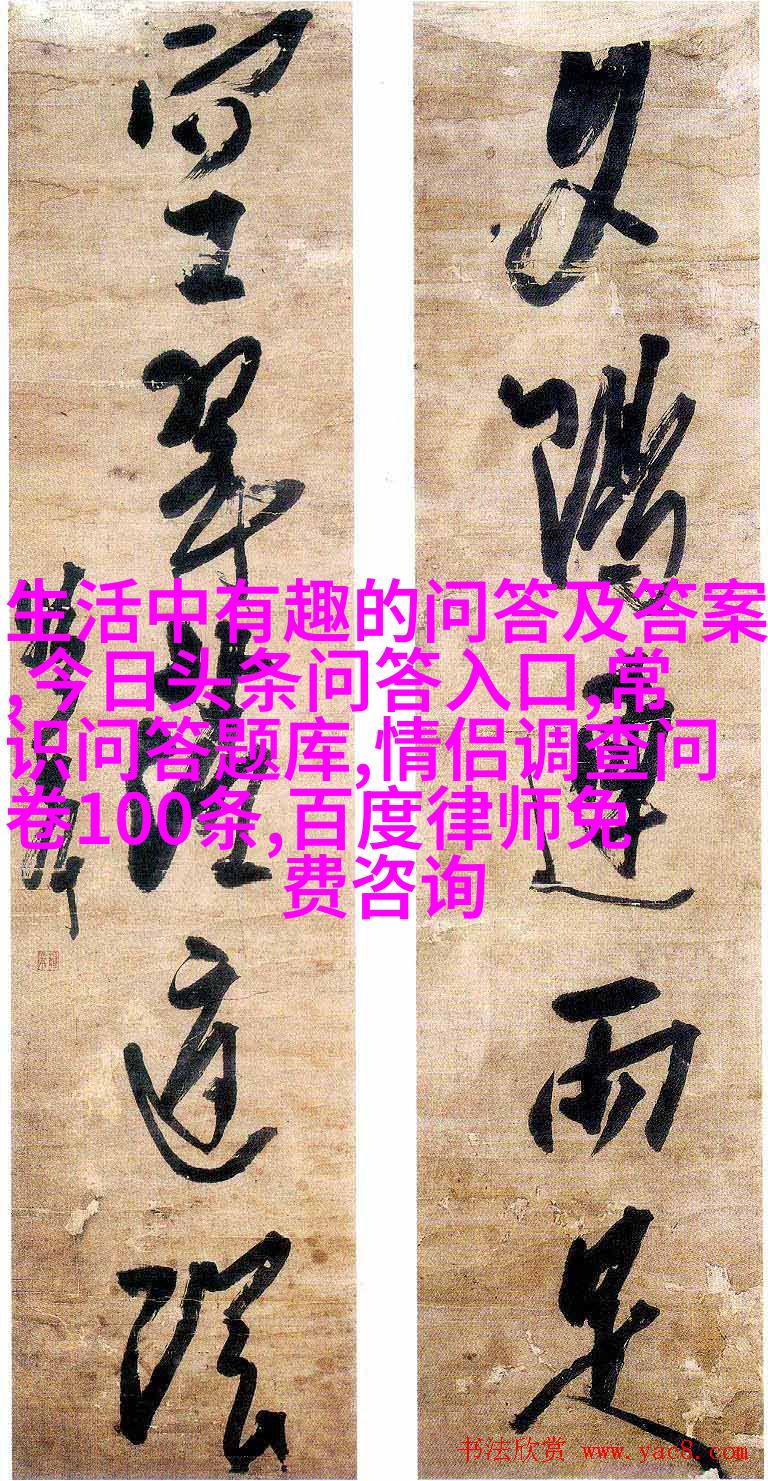 夕陽連雨足
空翠落庭陰
生活中有趣的问答及答案
,今日头条问答入口,常
识问答题库,情侣调查问
卷100条,百度律师免
费咨询
书法欣赏 www.yac8.com